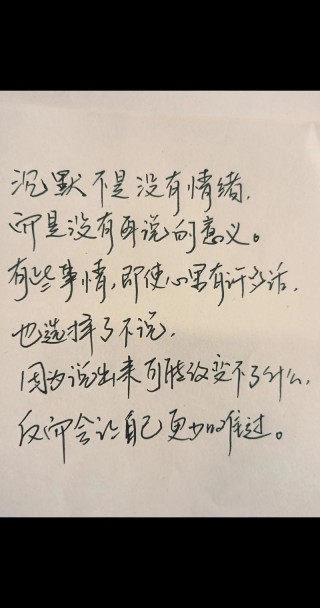 沉默不是没有情绪,
而是没有再说的意义。
有些事情,即使心里有许多话,
也选择了不说,
因为说出来可能改变不了什么,
反而会让自己更加难过。